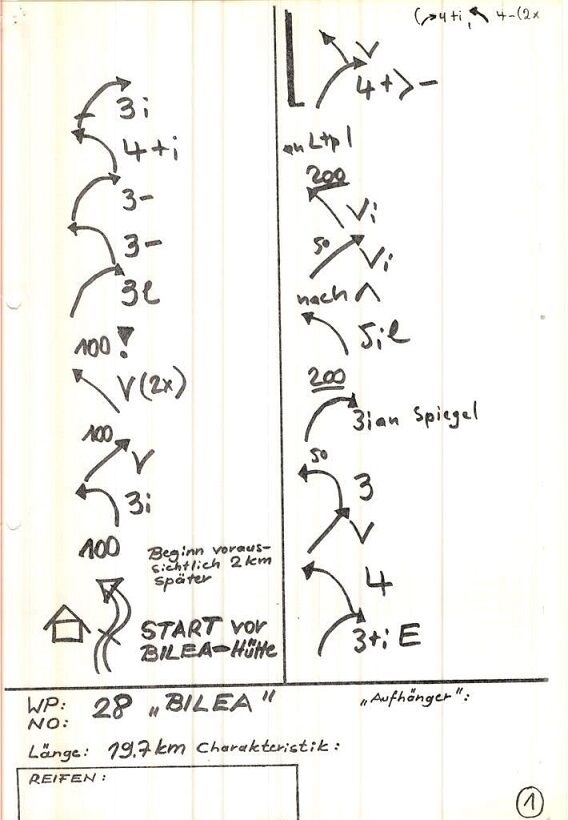 (4+i, 4-(2x
3i
4+i
3-
3-
3l
100 !
V(2x)
100
V
3i
100
Beginn voraus-
sichtlich 2km
später
START vor
BILEA-Hütte
V
4+>-
an Ltpl
200
Vi
50
Vi
nach ∧
5il
200
3i an Spiegel
50
3
V
4
3+i E
WP: 28 „BILEA"
NO:
„Aufhänger":
Länge: 19,7km Charakteristik:
REIFEN:
1